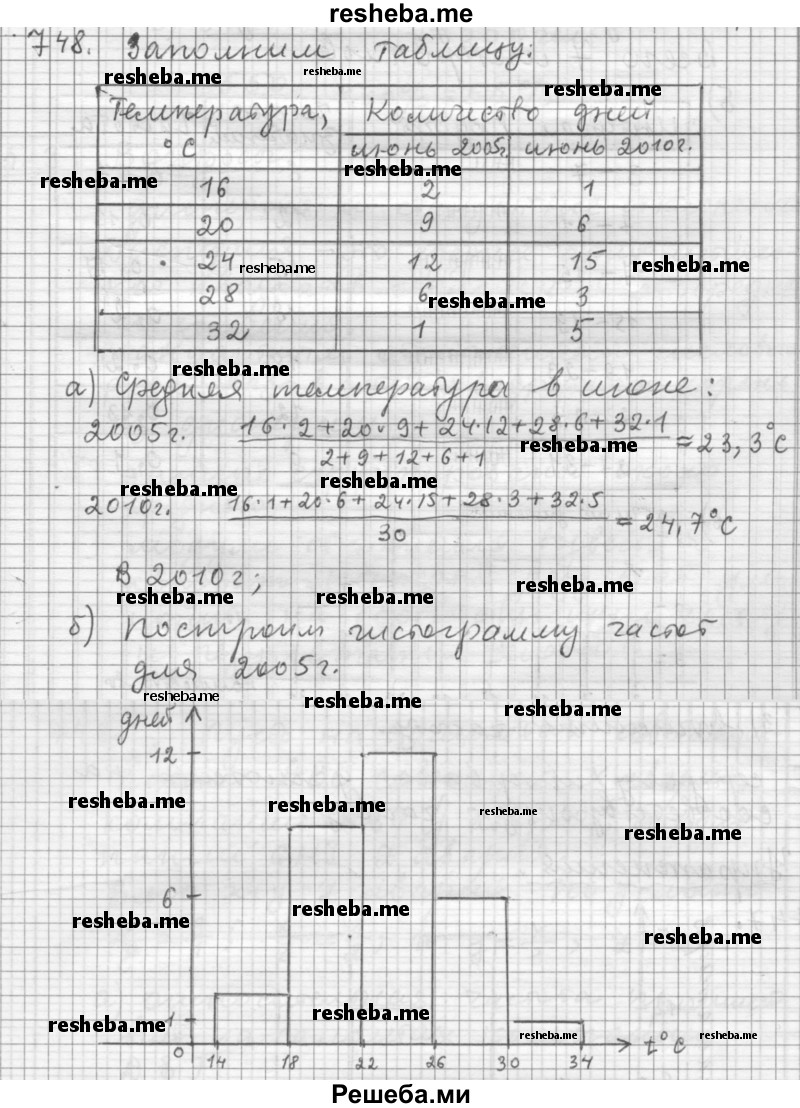 resheba.me
748. Заполним таблицу:
resheba.me resheba.me resheba.me
Температура, °C Количество дней
июнь 2005г. июнь 2010г.
resheba.me resheba.me
16 2 1
20 9 6
24 resheba.me 12 15 resheba.me
28 6 resheba.me 3
32 1 5
resheba.me
а) Средняя температура в июне:
2005г. 16·2+20·9+24·12+28·6+32·1 / 2+9+12+6+1 ≈ 23,3°C
resheba.me
resheba.me resheba.me
2010г. 16·1+20·6+24·15+28·3+32·5 / 30 = 24,7°C
В 2010г;
resheba.me resheba.me resheba.me
б) Построим гистограмму частот
для 2005г.
resheba.me resheba.me resheba.me
дней
12
resheba.me resheba.me resheba.me resheba.me
6
resheba.me resheba.me resheba.me
1
resheba.me resheba.me resheba.me resheba.me
0 14 18 22 26 30 34 t°C
Решеба.ми